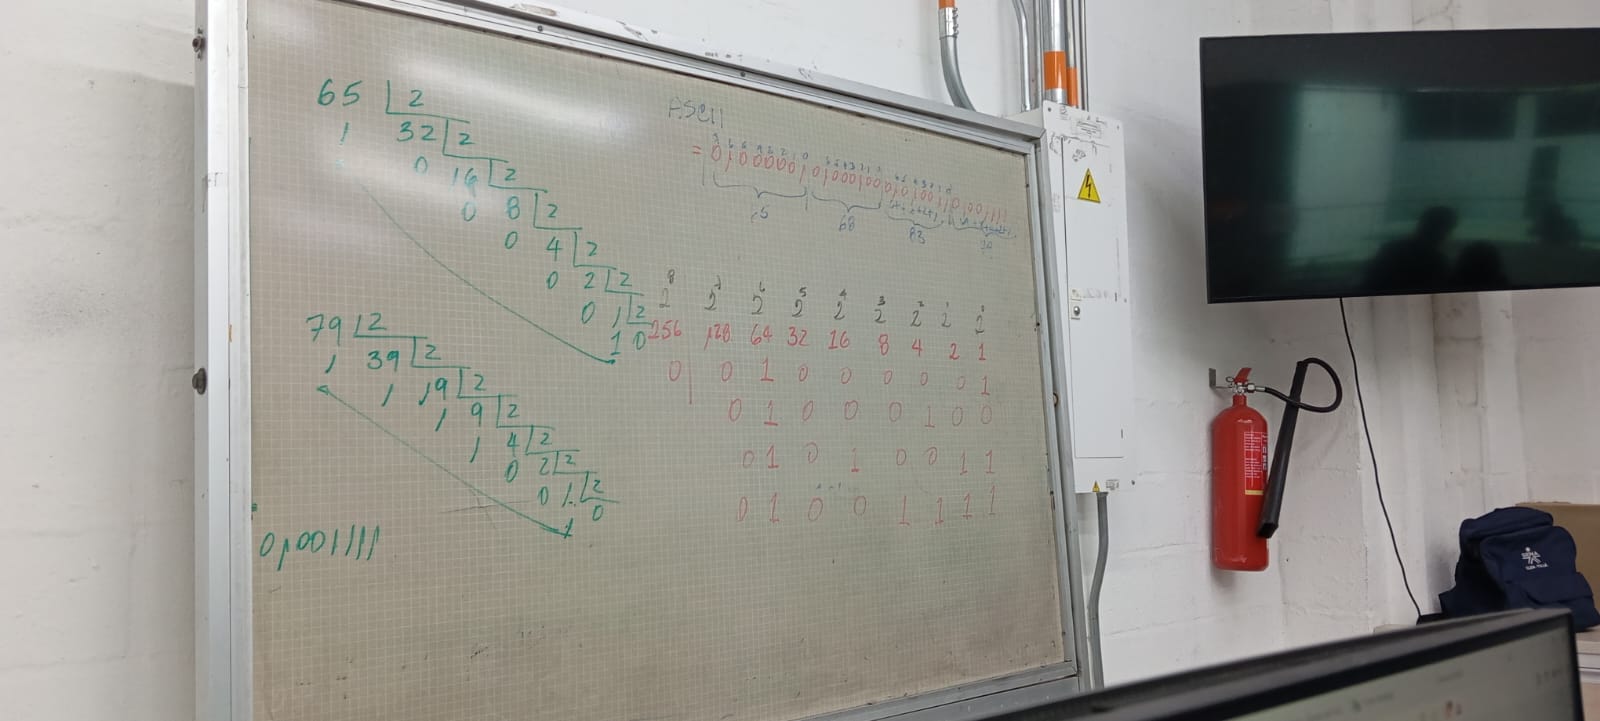 65 2
1 32 2
0 16 2
0 8 2
0 4 2
0 2 2
0 1 2
1 0
79 2
1 39 2
1 19 2
1 9 2
1 4 2
0 2 2
0 1 2
1 0
01001111
ASCII
= 01000001 01000100 01010011 01001111
65 68 83 79
2⁸ 2⁷ 2⁶ 2⁵ 2⁴ 2³ 2² 2¹ 2⁰
256 128 64 32 16 8 4 2 1
0 0 1 0 0 0 0 0 1
0 1 0 0 0 1 0 0
0 1 0 1 0 0 1 1
0 1 0 0 1 1 1 1